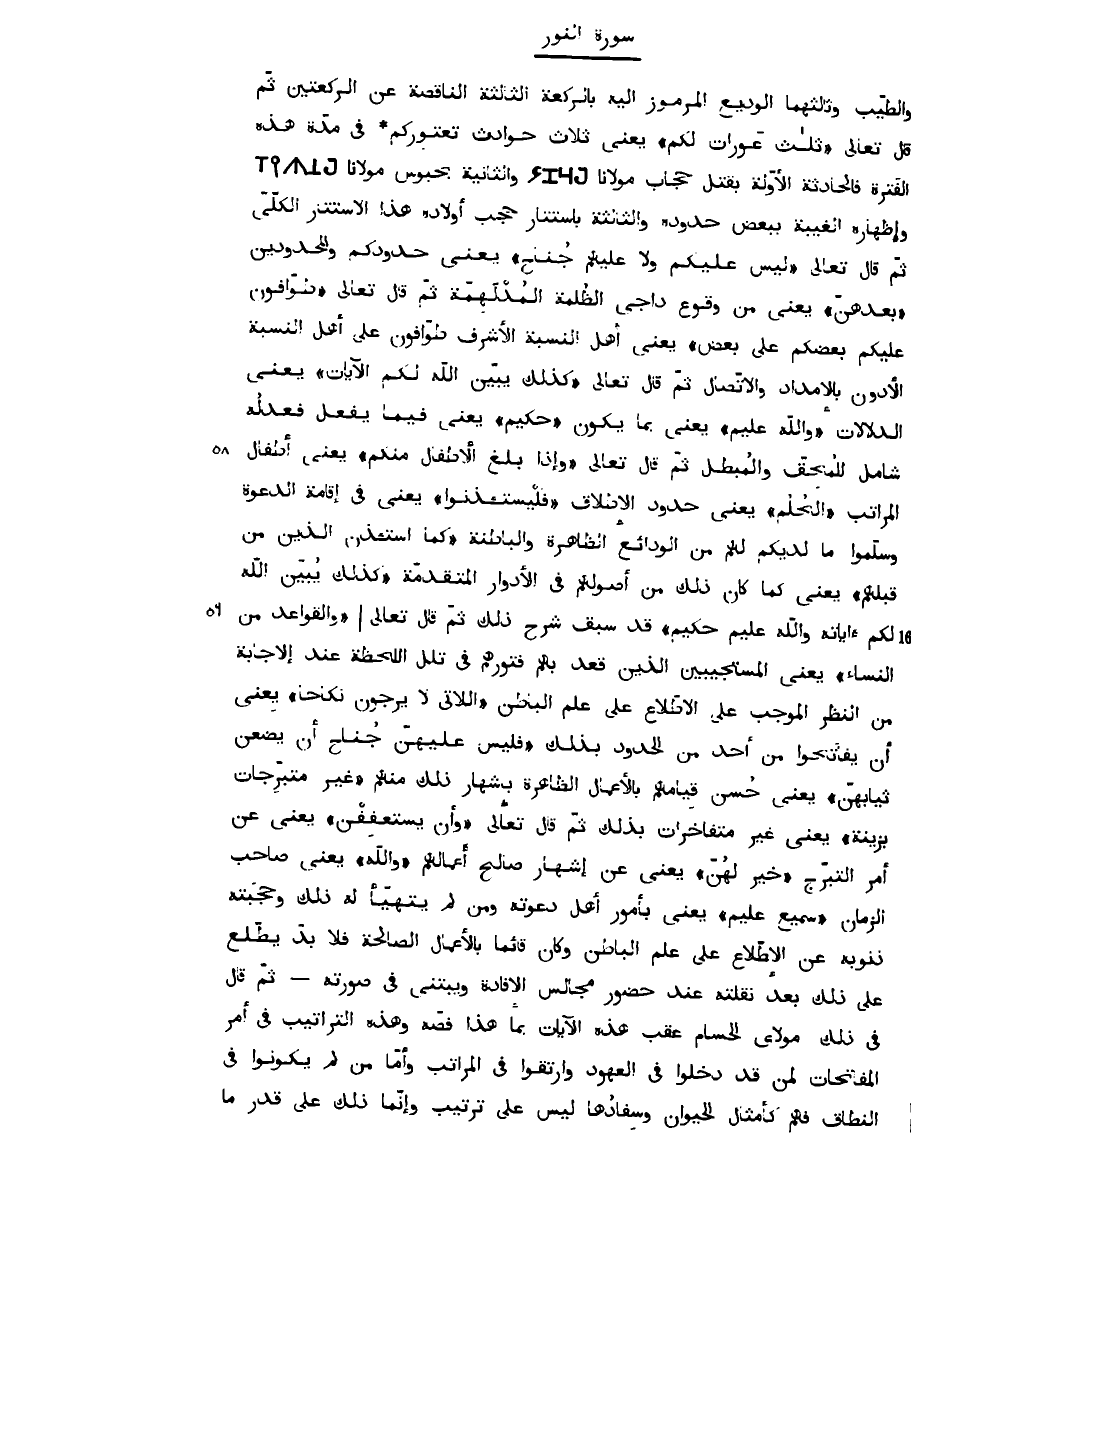 سورة النور
والطيّب وثالثهما الوديع المرموز اليه بالركعة الثالثة الناقصة عن الركعتين ثمّ
قل تعالى «ثلٰث عَورات لكم» يعنى ثلاث حوادث تعتوركم* فى مدّة هذه
الفترة فالحادثة الأوّلة بقتل حجاب مولانا والثانية بحبوس مولانا
وإظهاره الغيبة ببعض حدوده والثالثة باستتار حجب أولاده هذا الاستتار الكلّىّ
ثمّ قال تعالى «ليس عليكم ولا عليهم جُناح» يعنى حدودكم والمحدودين
«بعدهنّ» يعنى من وقوع داجى الظُلمة المُدْلَهِمّة ثمّ قال تعالى «طوّافون
عليكم بعضكم على بعض» يعنى أهل النسبة الأشرف طوّافون على أهل النسبة
الأدون بالامداد والاتّصال ثمّ قال تعالى «كذلك يبّين اللّه لكم الآيات» يعنى
الدلالات «واللّه عليم» يعنى بما يكون «حكيم» يعنى فيما يفعل فعدلُه
شامل للمُحقّ والمُبطل ثمّ قال تعالى «وإذا بلغ الأطفال منكم» يعنى أطفال ٥٨
المراتب «الحُلُم» يعنى حدود الإطلاق «فلْيستئذنوا» يعنى فى إقامة الدعوة
وسلّموا ما لديكم لهم من الودائع الظاهرة والباطنة «كما استئذن الذين من
قبلهم» يعنى كما كان ذلك من أصولهم فى الأدوار المتقدمّة «كذلك يُبيّن اللّه
16 لكم ءاياته واللّه عليم حكيم» قد سبق شرح ذلك ثمّ قال تعالى | «والقواعد من ٥٩
النساء» يعنى المستجيبين الذين قعد بهم فتورهم فى تلك اللحظة عند الاجابة
من النظر الموجب على الاطّلاع على علم الباطن «اللاتى لا يرجون نكاحا» يعنى
أن يفاتحوا من أحد من الحدود بذلك «فليس عليهنّ جُناح أن يضعن
ثيابهنّ» يعنى حُسن قيامهم بالأعمال الظاهرة بشهار ذلك منهم «غير متبرّجات
بزينة» يعنى غير متفاخرات بذلك ثمّ قال تعالى «وأن يستعففْن» يعنى عن
أمر التبرّج «خير لهُنّ» يعنى عن إشهار صالح أعمالهم «واللّه» يعنى صاحب
الزمان «سميع عليم» يعنى بأمور أهل دعوته ومن لم يتهيّأ له ذلك وحجَبته
ذنوبه عن الاطّلاع على علم الباطن وكان قائما بالأعمال الصالحة فلا بدّ يطّلع
على ذلك بعد نقلته عند حضور مجالس الإفادة ويبتنى فى صورته — ثمّ قال
فى ذلك مولاى الحسام عقب هذه الآيات بما هذا فصّه وهذه التراتيب فى أمر
المفاتحات لمن قد دخلوا فى العهود وارتقوا فى المراتب وأمّا من لم يكونوا فى
النطاق فهم كأمثال الحيوان وسِفادُها ليس على ترتيب وإنّما ذلك على قدر ما